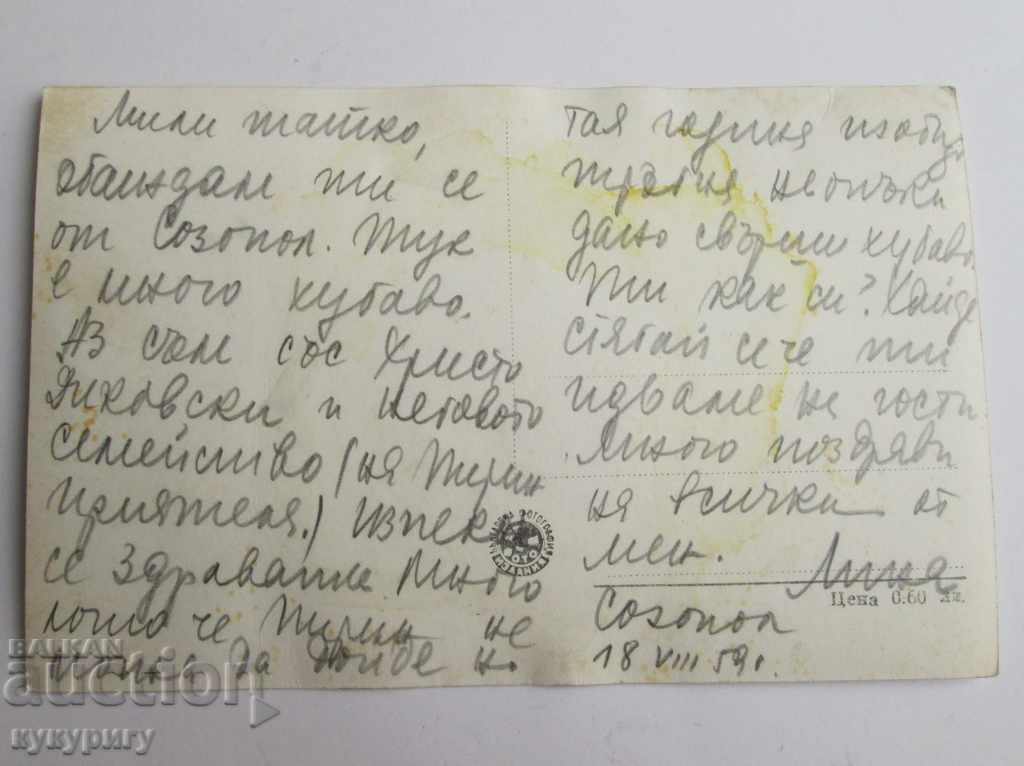 Мили татко,
обаждам ти се
от Созопол. Тук
е много хубаво.
Аз съм със Христо
Янковски и неговото
семейство (на Пирин
приятеля.) Изпек
се здравата. Много
лошо че Пирин не
можа да дойде н.
тая година изобщо
тръгна наопъки
дано свърши хубаво
Ти как си? Хайде
стягай се че ти
идваме на гости.
Много поздрави
на всички от
мен. Лиля
Созопол
18 VIII 59 г.
Цена 0.60 лв.
BALKAN
auction
кукуригу